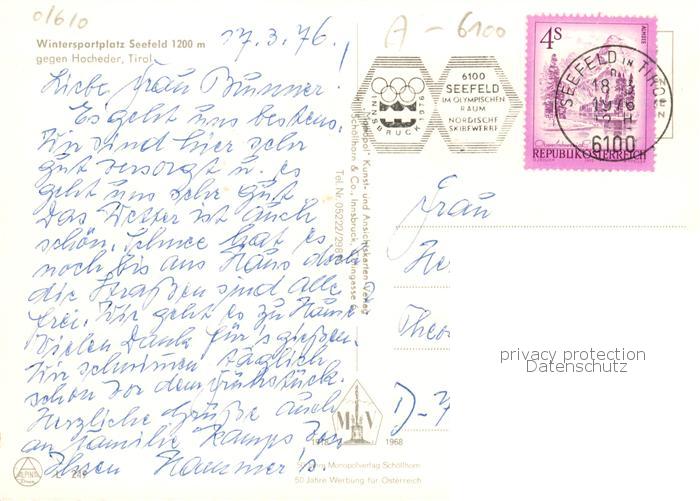 01610
A - 6100
Wintersportplatz Seefeld 1200 m
gegen Hocheder, Tirol
17.3.76.
Liebe Frau Brunner!
Es geht uns bestens.
Wir sind hier sehr
gut versorgt u. es
geht uns sehr gut.
Das Wetter ist auch
schön. Schnee hat es
noch bis ans Haus doch
die Straßen sind alle
frei. Wie geht es zu Hause
Vielen Dank für's gießen.
Wir schwimmen täglich
schon vor dem Frühstück.
Herzliche Grüße auch
an Familie Kamps von
Ihren
INNSBRUCK 1976
6100
SEEFELD
IM OLYMPISCHEN
RAUM
NORDISCHE
SKIBEWERBE
4S
REPUBLIK ÖSTERREICH
SEEFELD IN TIROL
1976
6100
Kunst- und Ansichtskarten Verlag
Schöllhorn & Co., Innsbruck
Tel. Nr. 05222/
Frau
He
Theo
D-7
privacy protection
Datenschutz
ALPINA
M V
1968
50 Jahre Monopolverlag Schöllhorn
50 Jahre Werbung für Österreich